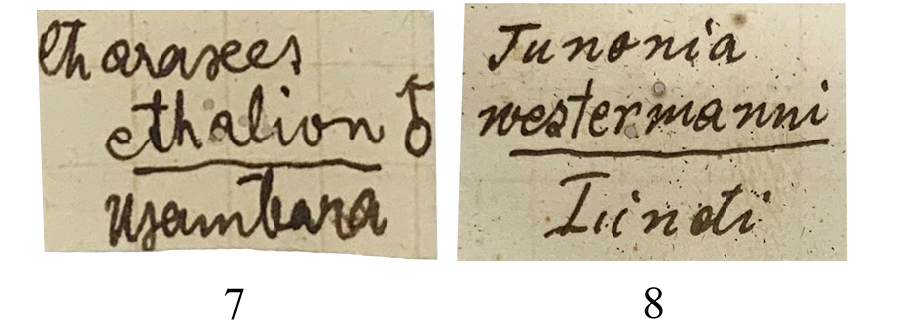 Charaxes
ethalion ♂
Usambara
Junonia
westermanni
Lindi
7
8